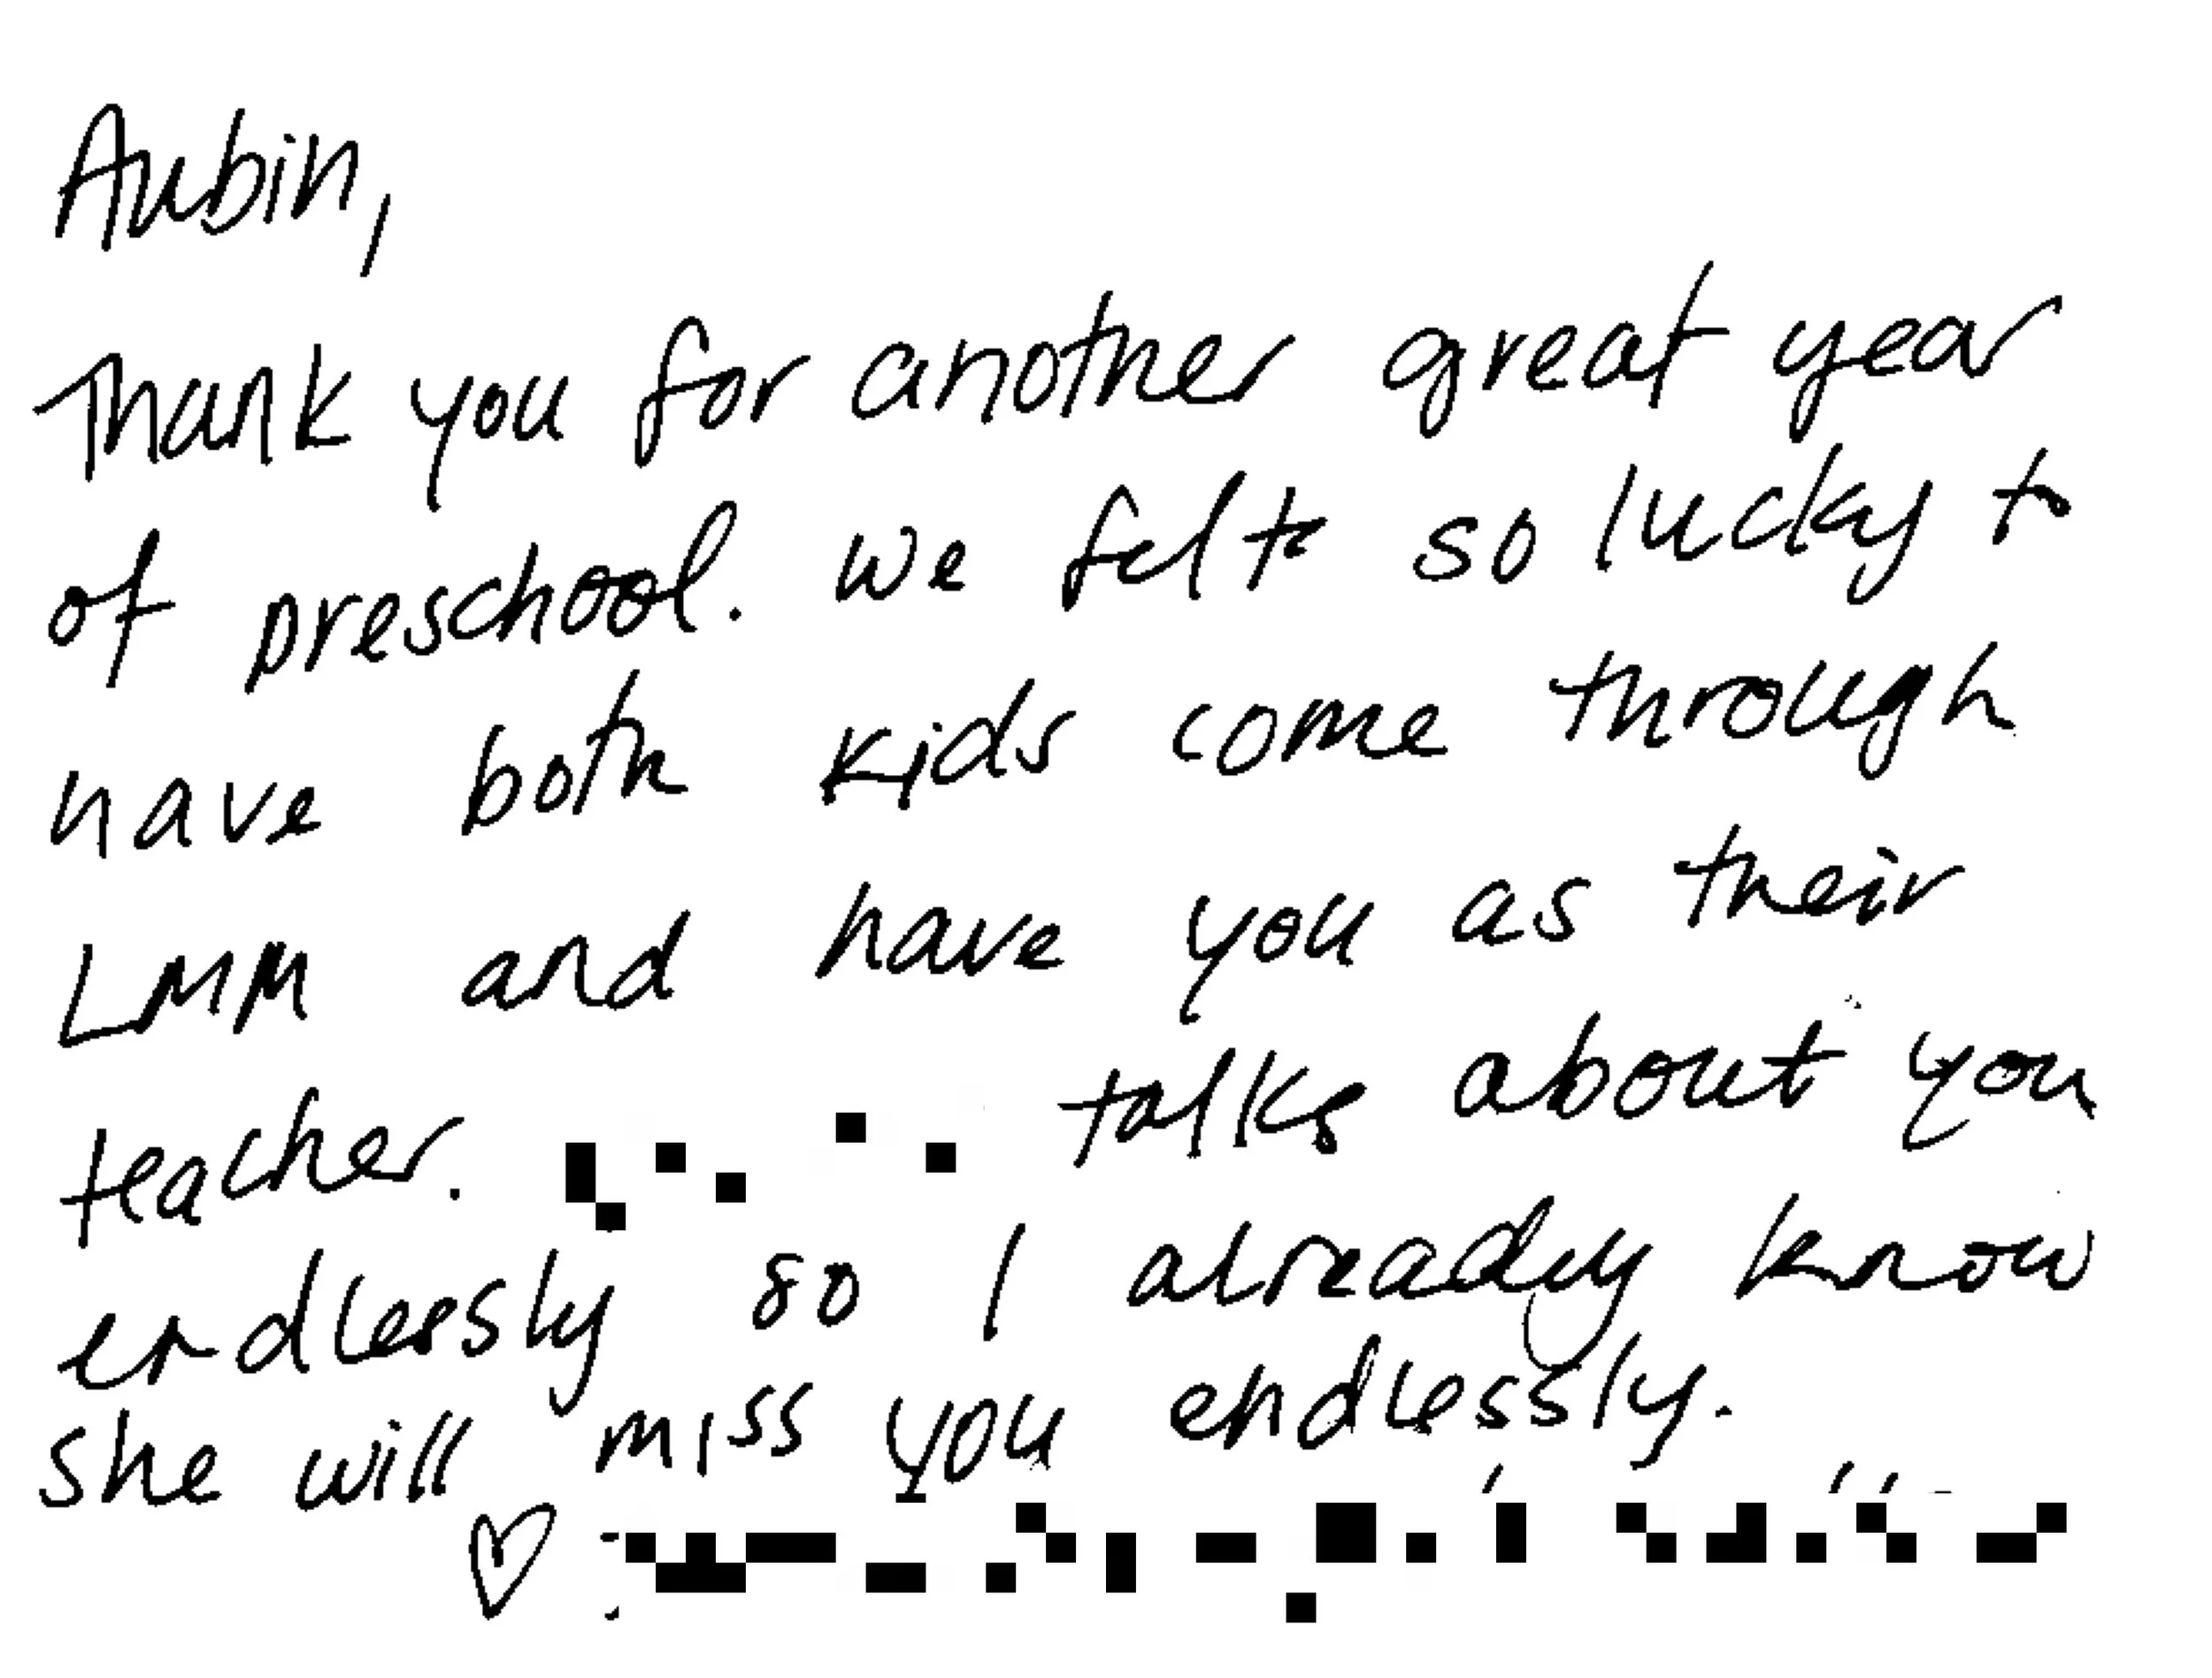 Aubin,
Thank you for another great year
of preschool. We felt so lucky to
have both kids come through
LMM and have you as their
teacher. talks about you
endlessly so I already know
she will miss you endlessly.
♡